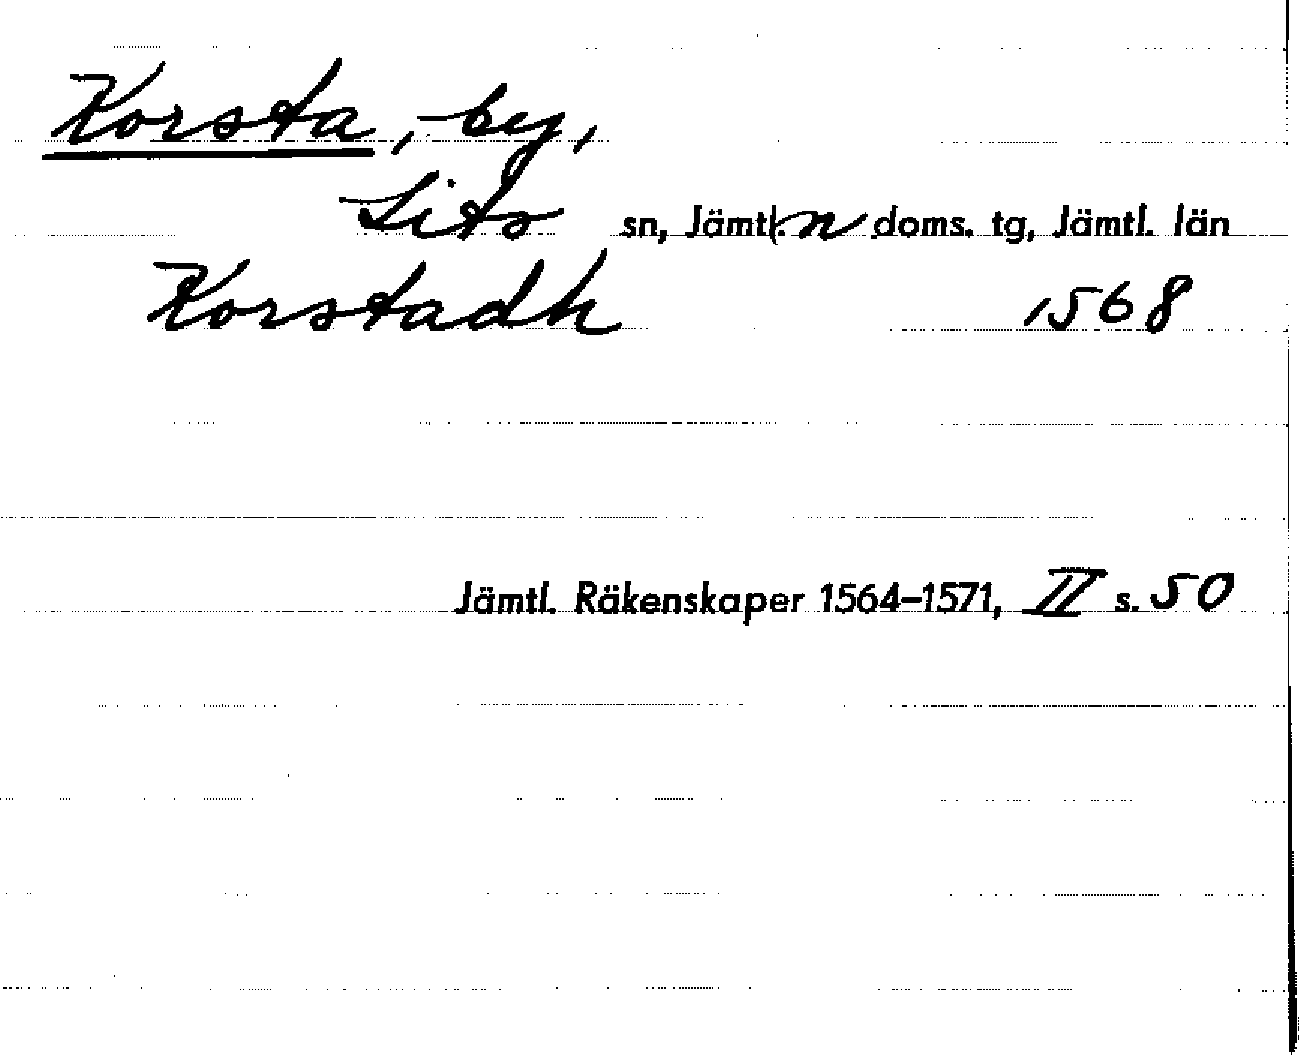 Korsta, by,
Lits sn, Jämtl. n doms. tg, Jämtl. län
Korstadh 1568
Jämtl. Räkenskaper 1564–1571, II s. 50